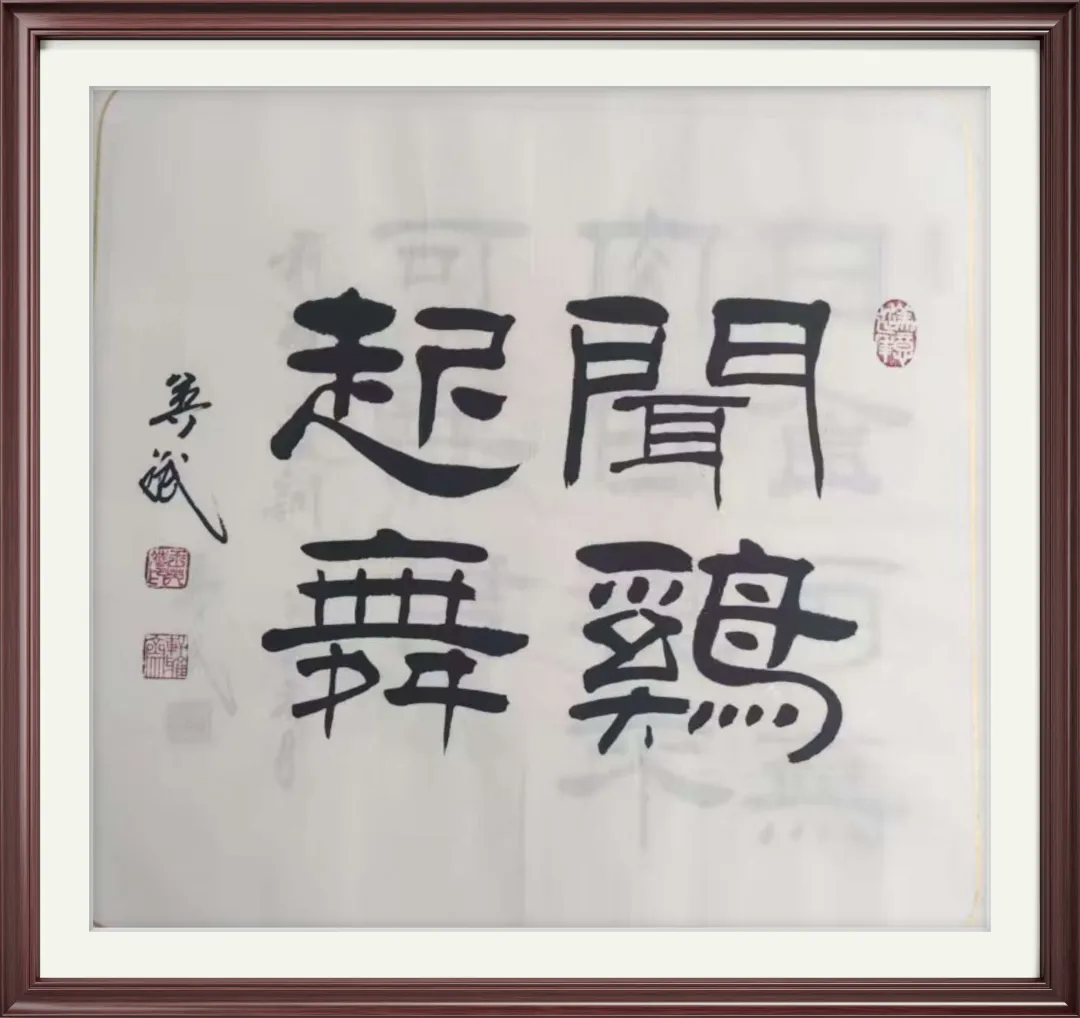 聞鷄
起舞
英斌